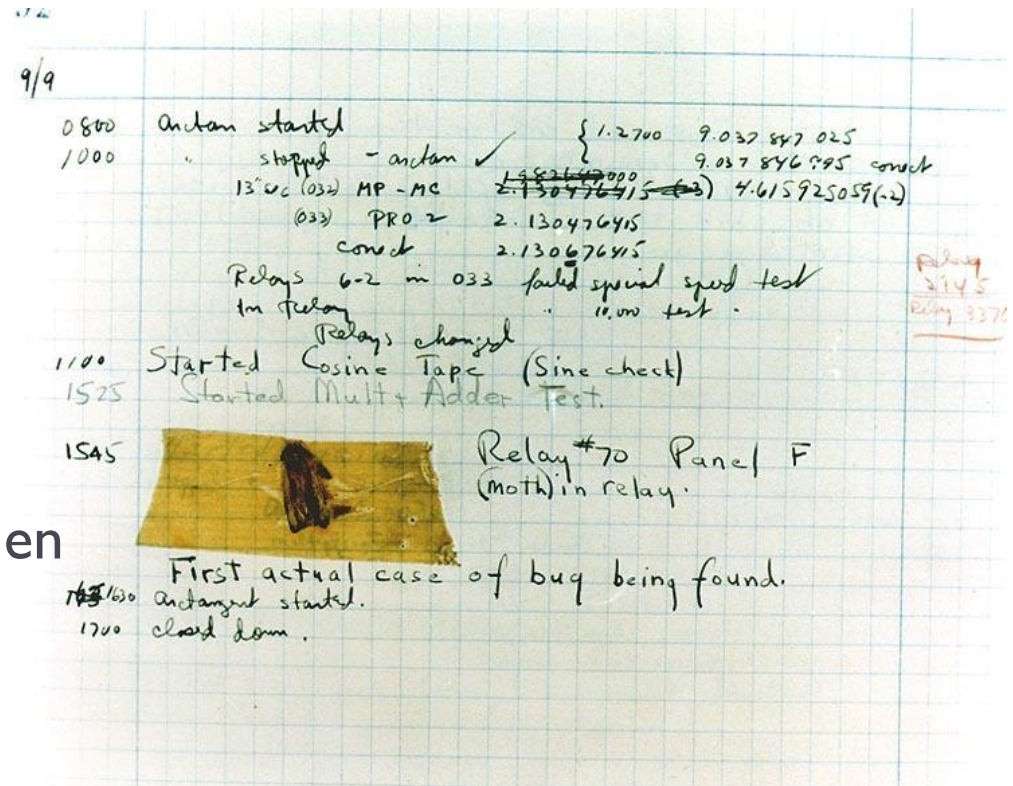 9/9
0800 arctan started { 1.2700 9.037 847 025
1000 " stopped - arctan ✓ 9.037 846 995 conect
13"uc (032) MP - MC 1.982647000 2.130476415 (-3) 4.615925059(-2)
(033) PRO 2 2.130476415
conect 2.130676415
Relays 6-2 in 033 failed special speed test
In Relay " 10,000 test .
Relays changed
Relay
2145
Relay 3370
1100 Started Cosine Tape (Sine check)
1525 Started Mult + Adder Test.
1545 Relay #70 Panel F
(moth) in relay.
en
First actual case of bug being found.
1630 arctangent started.
1700 closed down .